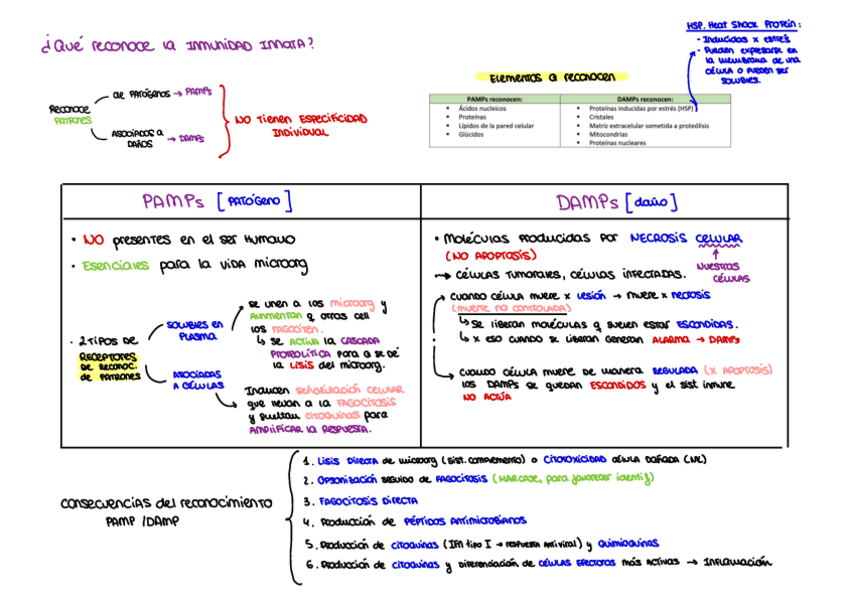 ¿Qué reconoce la inmunidad innata?
HSP. Heat Shock Protein:
- Inducidas x estrés
- Pueden expresarse en
la membrana de una
célula o pueden ser
solubles.
Elementos a reconocen
Reconoce
PATRONES
de PATÓGENOS → PAMPs
ASOCIADOS a
DAÑOS → DAMPs
NO TIENEN ESPECIFICIDAD
INDIVIDUAL
PAMPs reconocen:
Ácidos nucleicos
Proteínas
Lípidos de la pared celular
Glúcidos
DAMPs reconocen:
Proteínas inducidas por estrés (HSP)
Cristales
Matriz extracelular sometida a proteólisis
Mitocondrias
Proteínas nucleares
PAMPs [PATÓGENO]
• NO presentes en el ser humano
• Esenciales para la vida microorg
• 2 tipos de
RECEPTORES
DE RECONOC.
de PATRONES
SOLUBLES EN
PLASMA
se unen a los microorg y
aumentan q otras cell
los fagociten.
↳ se activa la CASCADA
PROTEOLÍTICA para q se dé
la LISIS del microorg.
ASOCIADAS
A CÉLULAS
Inducen señalización celular
que llevan a la FAGOCITOSIS
y sueltan citoquinas para
AMPLIFICAR la RESPUESTA.
DAMPs [daño]
• Moléculas producidas por NECROSIS CELULAR
(NO APOPTOSIS)
NUESTRAS
CÉLULAS
→ CÉLULAS TUMORALES, CÉLULAS INFECTADAS.
cuando célula muere x lesión → muere x necrosis
(muerte no controlada)
↳ se liberan moléculas q suelen estar ESCONDIDAS.
↳ x eso cuando se liberan generan ALARMA → DAMPs
cuando célula muere de manera REGULADA (x APOPTOSIS)
los DAMPs se quedan ESCONDIDOS y el sist inmune
NO ACTÚA
consecuencias del reconocimiento
PAMP / DAMP
1. Lisis DIRECTA de microorg (sist. complemento) o CITOTOXICIDAD célula dañada (NK)
2. Opsonización seguido de FAGOCITOSIS (MARCAJE, para favorecer identif)
3. FAGOCITOSIS DIRECTA
4. Producción de PÉPTIDOS ANTIMICROBIANOS
5. Producción de citoquinas (IFN tipo I → respuesta antiviral) y quimioquinas
6. Producción de citoquinas y diferenciación de CÉLULAS EFECTORAS más activas → INFLAMACIÓN